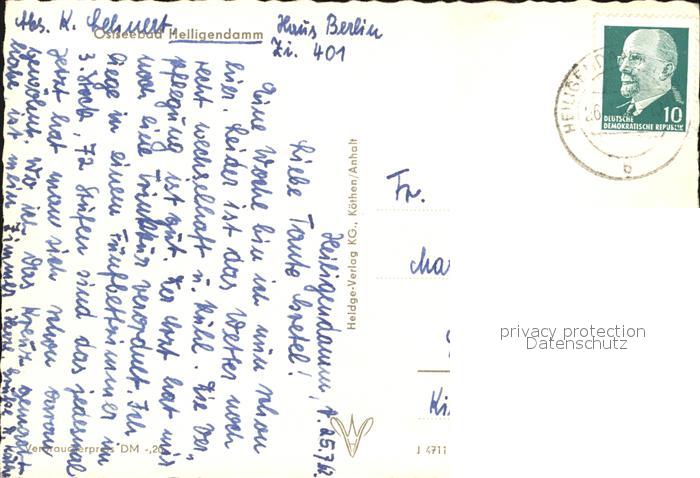 Abs. K.
Ostseebad Heiligendamm
Haus Berlin
Zi. 401
Heiligendamm, d. 25.7.62
Liebe Tante Gretel!
Eine Woche bin ich nun schon
hier. Leider ist das Wetter noch
recht wechselhaft u. kühl. Die Ver-
pflegung ist gut. Der Arzt hat mir
noch eine Trinkkur verordnet. Ich
liege in einem Fünfbettzimmer im
3. Stock, 72 Stufen sind das jedesmal
Jetzt hat man sich schon daran
gewöhnt. Wo ich das Kreuz gemacht
habe ist mein Zimmer.
Verbraucherpreis DM -,20
Heldge-Verlag KG., Köthen/Anhalt
J 4711
Fr.
Ma
Ki
DEUTSCHE
DEMOKRATISCHE REPUBLIK
10
HEILIGEND
b
privacy protection
Datenschutz